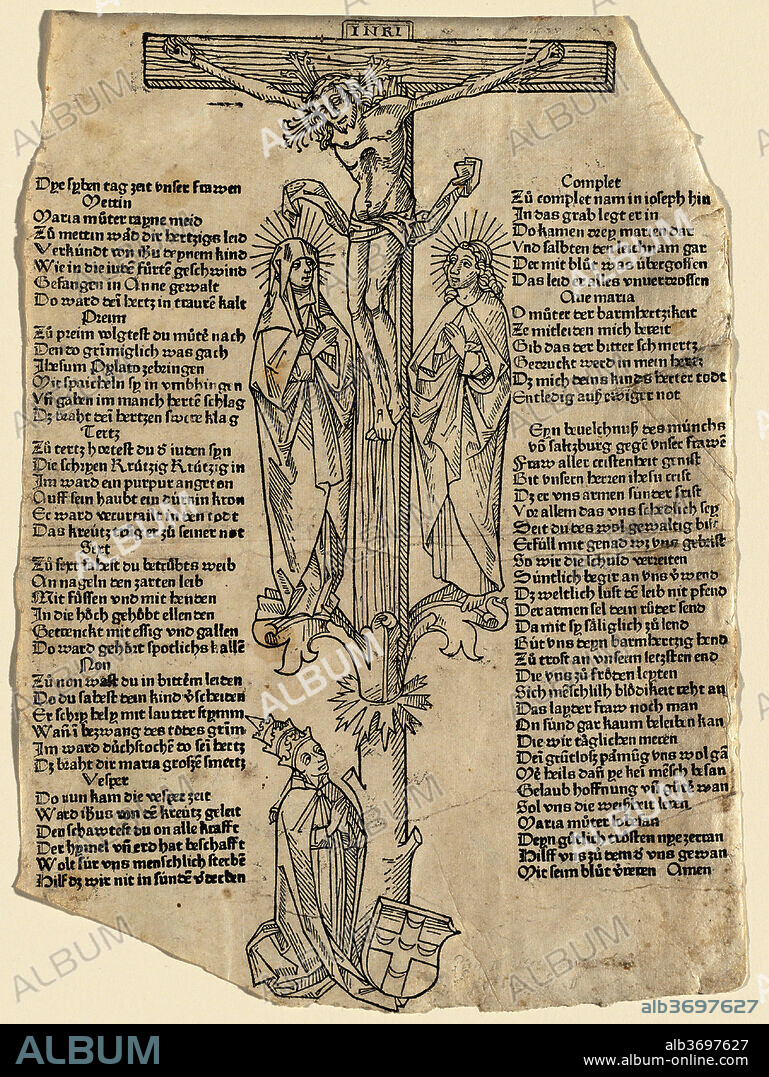 INRI
Dye syben tag zeit vnser frawen
Mettin
Maria můter rayne meid
Zů mettin wad dir hertzigs leid
Verkündt von ihū deynem kind
Wie in die iudē fürtē geschwind
Gefangen in Anne gewalt
Do ward dei hertz in traurē kalt
Preim
Zů preim volgtest du můtē nach
Den do grimiglich was gach
Ihesum Pylato zebringen
Mit spaicheln sy in vmbhingen
Vn gaben im manch hertē schlag
Dz braht dei hertzen swere klag
Tertz
Zů tertz hortest du d iuden syn
Die schryen krützig krützig in
Im ward ein purpur angeton
Auff sein haubt ein dürnin kron
Er ward verurtailt in den todt
Das kreütz trug er zů seiner not
Sext
Zů sext sahest du betrübtes weib
An nageln den zarten leib
Mit füssen vnd mit henden
In die höch gehöbt ellenden
Getrenckt mit essig vnd gallen
Do ward gehört spotlichs kallē
Non
Zů non wast du in bittem leiden
Do du sahest dein kind vscheiden
Er schry hely mit lautter stymm
Wañ bezwang des todes grim
Im ward duchstochē do sei hertz
Dz braht dir maria großē smertz
Vesper
Do nun kam die vesper zeit
Ward ihus von dē kreütz geleit
Den schawtest du on alle krafft
Der hymel vn erd hat beschafft
Wolt für vns menschlich sterbē
Hilf dz wir nit in sünden vderben
Complet
Zů complet nam in ioseph hin
In das grab legt er in
Do kamen drey marien dar
Vnd salbten den leichnam gar
Der mit blůt was übergossen
Das leid er alles vnuerdrossen
Aue maria
O můter der barmhertzikeit
Ze mitleiden mich bereit
Gib das der bitter schmertz
Getruckt werd in mein hertz
Dz mich deins kinds herter todt
Entledig auß ewiger not
Eyn beuelchnuß des münchs
vō saltzburg gegē vnser frawē
Fraw aller cristenheit
Bit vnsern herren ihesu crist
Dz er vns armen sünder frist
Vor allem das vns schedlich sey
Seit du des wol gewaltig bist
Erfüll mit genad wz vns gebrist
So wir die schuld verreiten
Süntlich begir an vns vwend
Dz weltlich lust dē leib nit pfend
Der armen sel dein rüder send
Da mit sy säliglich zů lend
Büt vns deyn barmhertzig hend
Zů trost an vnserm letzsten end
Die vns zů fröden leyten
Sich mēschlilh blödikeit seht an
Das layder fraw noch man
On sünd gar kaum beleiben kan
Die wir täglichen meren
Dei grütloß vns wol gā
Gelaub hoffnung
Sol vns die weißheit leren
Maria můter lobesan
Deyn götlich trösten
Hilff vns zů dem d vns gewan
Mit seim blůt vreren Amen
ALBUM
alb3697627
ALBUM
alb3697627
www.album-online.com